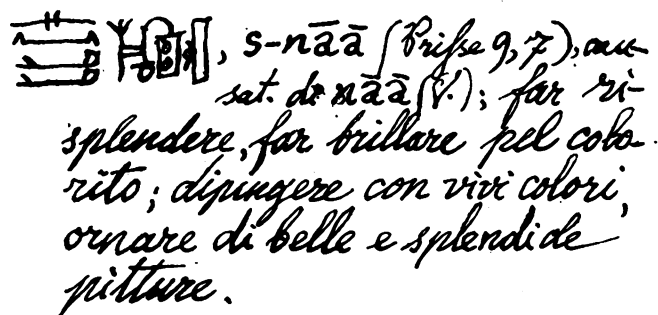 , s-nāā (Prisse 9,7), cau-
sat. di nāā (V.); far ri-
splendere, far brillare pel colo-
rito; dipingere con vivi colori,
ornare di belle e splendide
pitture.